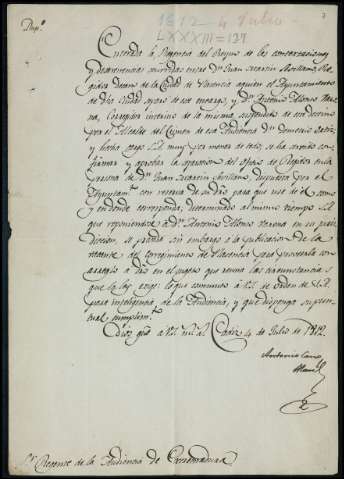 1812 - 4 Julio
LXXXIII = 127
Dup.º
Enterada la Regencia del Reyno de las contextaciones
y desavenencias entre D.n Juan
de la Ciudad de Plasencia aquien el Ayuntamiento
de dha Ciudad en ese encargo, y D.n Antonio Alfonso
Corregidor interino de la misma, suspendido de ese destino
por el Alcalde del Crimen de esa Audiencia D.n Domecio
y hecho cargo S.A. muy por menor de todo, se ha servido
y aprobar la del oficio de en la
persona de D.n Juan por el
Ayuntam.to con reserva de su dro para que use de el como
y en donde corresponda, determinando al mismo tiempo S.A.
que reponiendose á D.n Antonio Alfonso en su
diccion, se proceda sin embargo á la publicacion de la
vacante del corregimiento de Plasencia para proveerla con
arreglo á en el sugeto que reuna las circunstancias
que la ley exige: lo que comunico á V.S. de orden de S.A.
para inteligencia de la Audiencia, y que disponga su pun-
tual cumplim.to
Dios gue á V.S. m.s a.s Cadiz 4 de Julio de 1812.
Antonio Cano
Manuel
Sr. Regente de la Audiencia de Extremadura